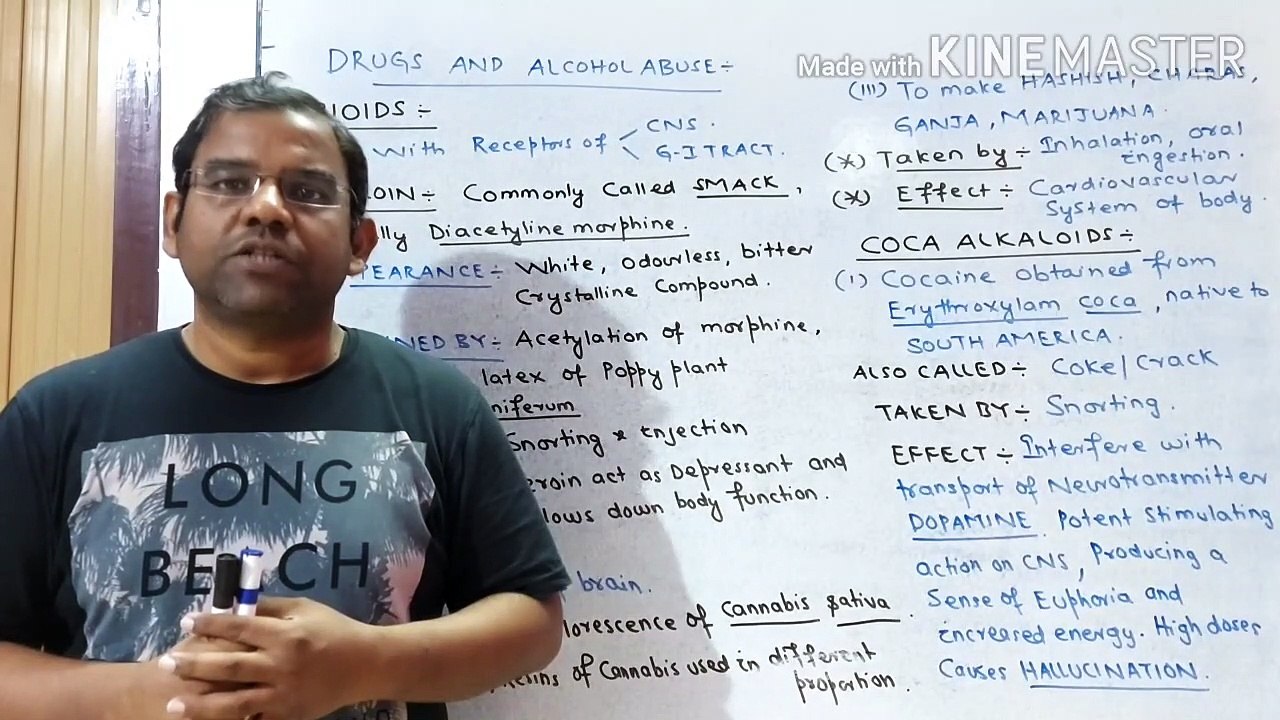 DRUGS AND ALCOHOL ABUSE ÷
IOIDS ÷
With Receptors of CNS.
G-I TRACT.
OIN ÷ Commonly Called SMACK,
lly Diacetyline morphine.
PEARANCE ÷ White, odourless, bitter
Crystalline Compound.
NED BY ÷ Acetylation of morphine,
latex of Poppy plant
niferum
Snorting & Injection
eroin act as Depressant and
lows down body function.
brain.
lorescence of Cannabis sativa.
of Cannabis used in different
proportion.
Made with KINEMASTER
(III) To make HASHISH, CHARAS,
GANJA, MARIJUANA.
(*) Taken by ÷ Inhalation, oral
ingestion.
(*) Effect ÷ Cardiovascular
System of body.
COCA ALKALOIDS ÷
(1) Cocaine obtained from
Erythroxylam coca, native to
SOUTH AMERICA.
ALSO CALLED ÷ Coke/Crack
TAKEN BY ÷ Snorting.
EFFECT ÷ Interfere with
transport of Neurotransmitter
DOPAMINE. Potent Stimulating
action on CNS, Producing a
Sense of Euphoria and
increased energy. High doses
Causes HALLUCINATION.
LONG
BE CH